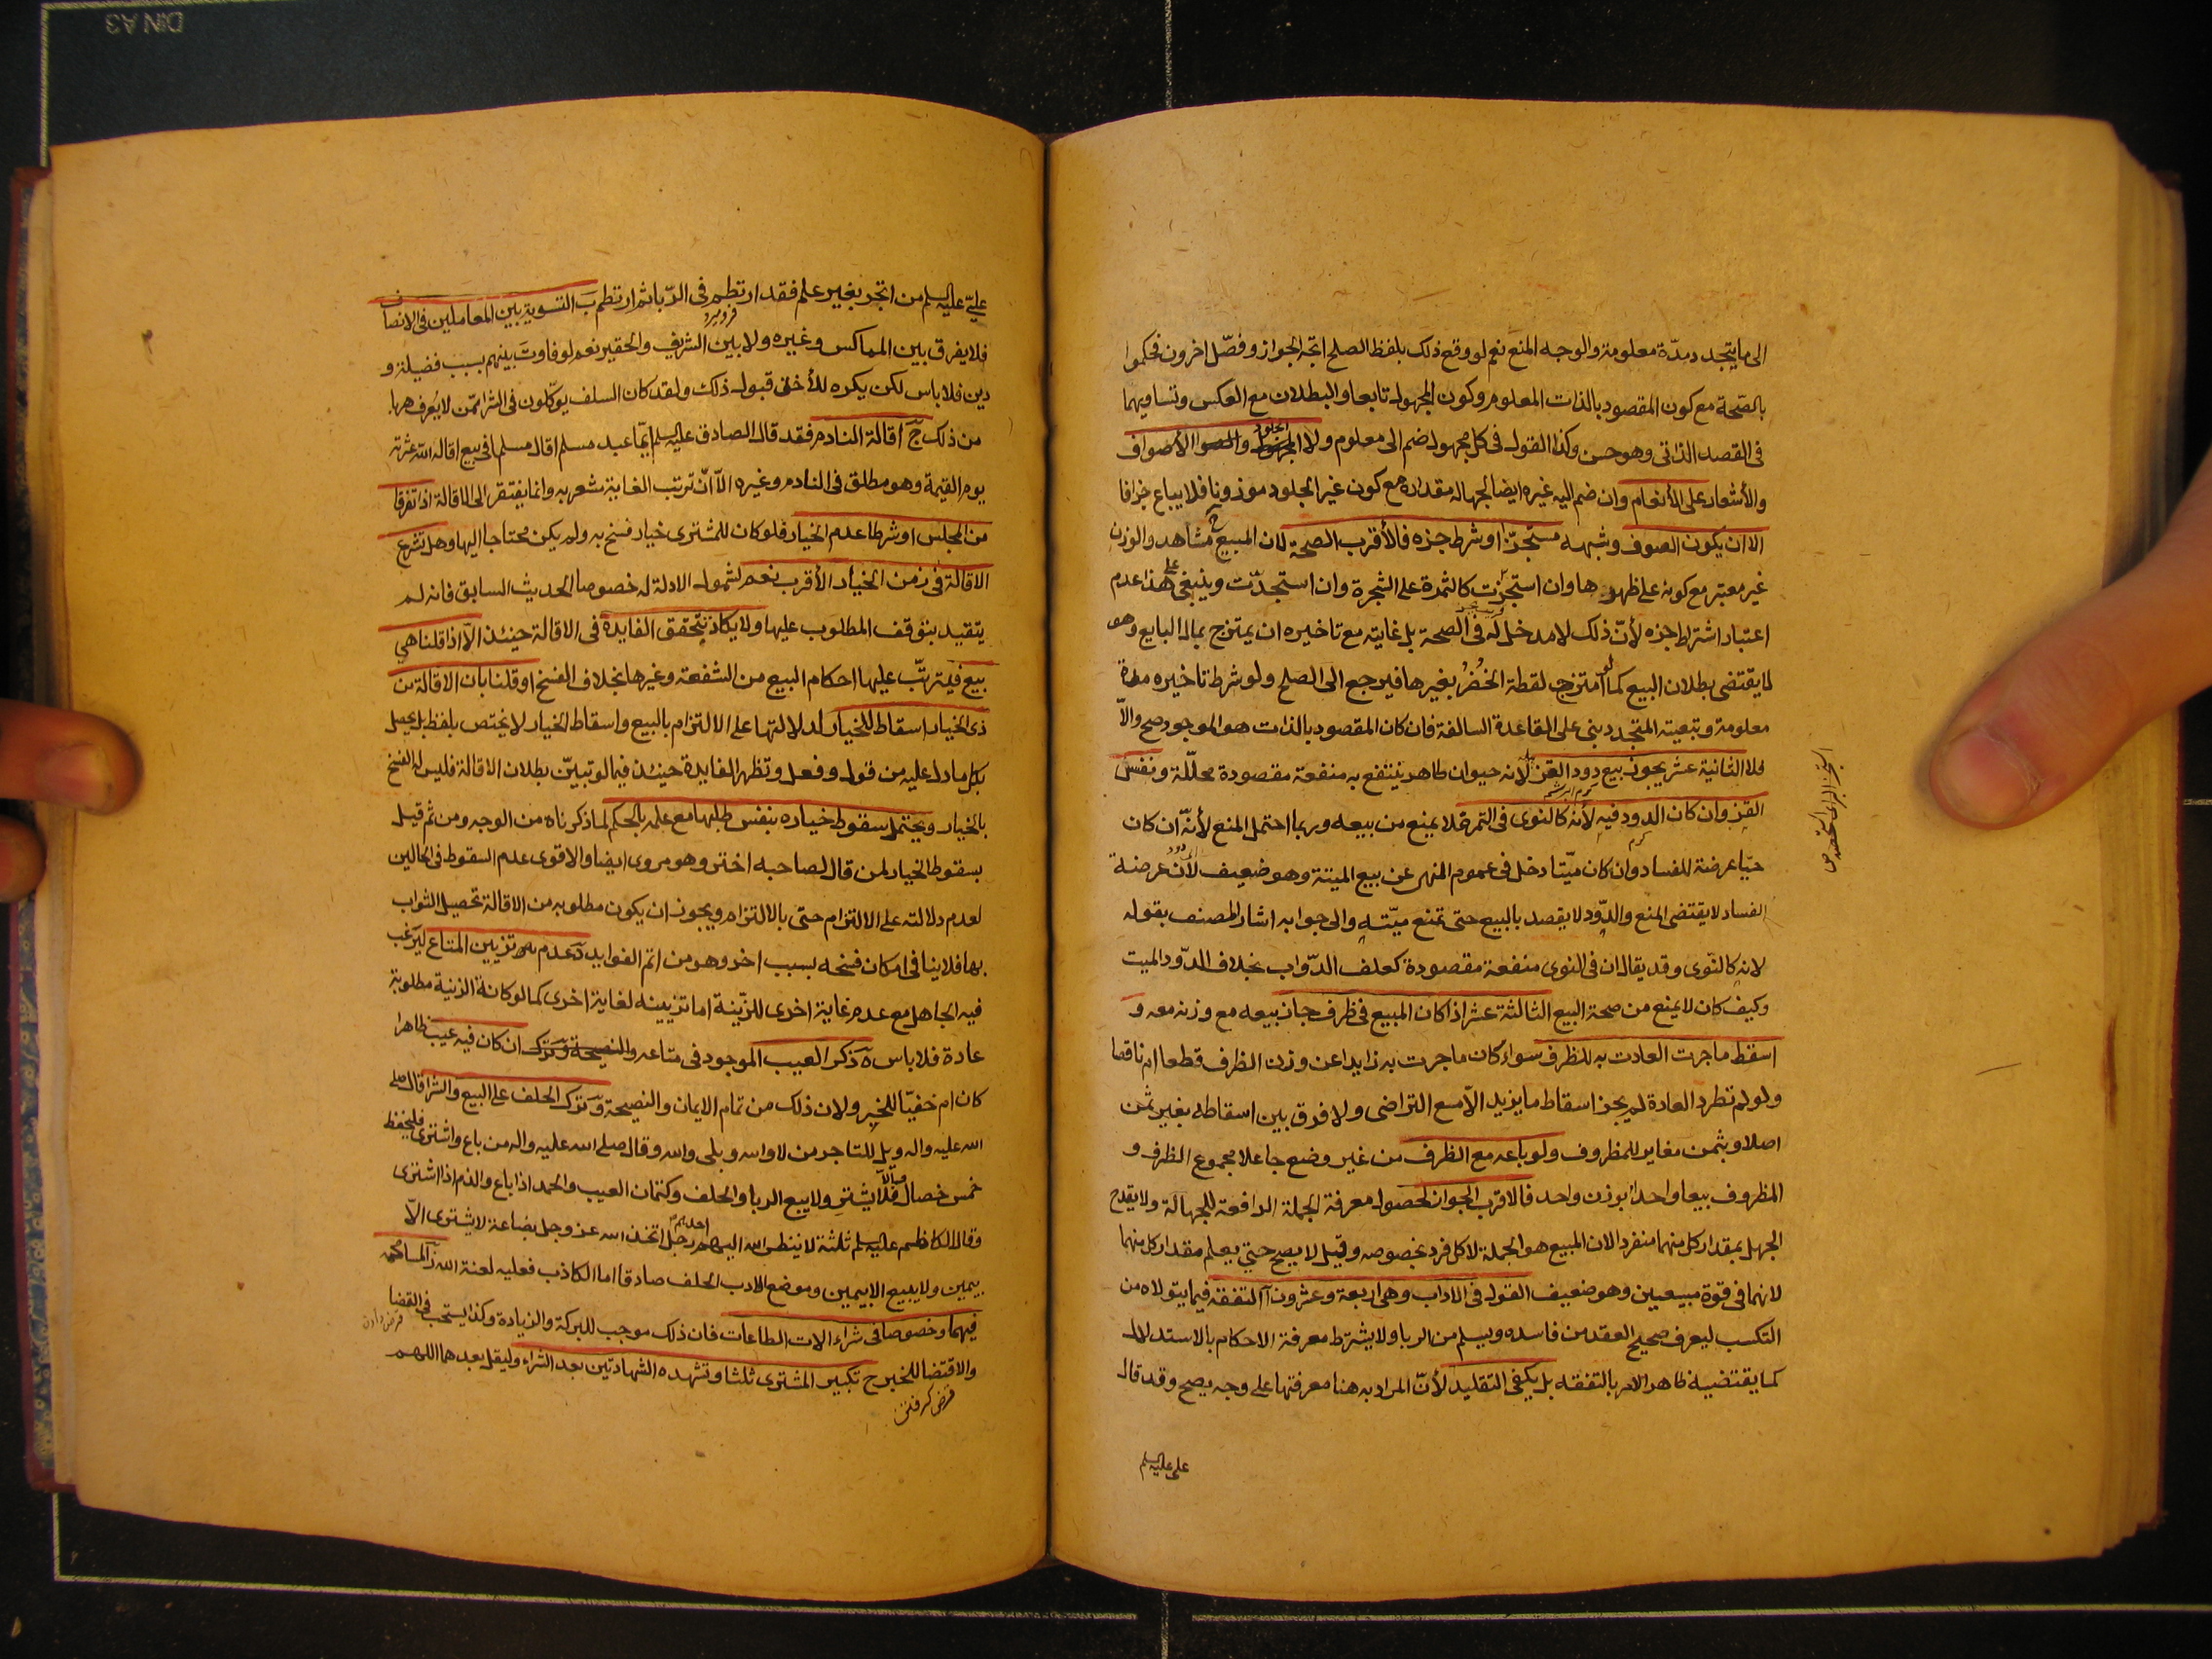 الى ما يتجدد مدّة معلومة والوجه المنع نعم لو وقع ذلك بلفظ الصلح اتجه الجواز وفصّل اخرون فحكموا
بالصّحة مع كون المقصود بالذات المعلوم وكون المجهول تابعا والبطلان مع العكس وتساويهما
فى القصد الذاتى وهو حسن وكذا القول فى كل مجهول ضم الى معلوم ولا الجلود والاصواف
والأشعار على الأنعام وان ضم اليه غيره ايضا لجهالة مقداره مع كون غير الجلود موزونا فلا يباع جزافا
الا ان يكون الصوف وشبهه مستجزّا او شرط جزه فالأقرب الصحة لان المبيع ح مشاهد والوزن
غير معتبر مع كونه على ظهورها وان استجزت كالثمرة على الشجرة وان استجدّت وينبغى على هذا عدم
اعتبار اشتراط جزه لأنّ ذلك لا مدخل له فى الصحة بل غايته مع تاخيره ان يمتزج بمال البايع وهو
لا يقتضى بطلان البيع كما لو امتزجت لقطة الخضر بغيرها فيرجع الى الصلح ولو شرط تاخيره مدة
معلومة وتبعيته المتجدد بنى على القاعدة السالفة فان كان المقصود بالذات هو الموجود صح والاّ
فلا الثانية عشر يجوز بيع دود القز لأنه حيوان طاهر ينتفع به منفعة مقصودة محلّلة ونفس
القز وان كان الدود فيه لأنه كالنوى فى التمر فلا يمنع من بيعه وربما احتمل المنع لأنّه ان كان
حيّا عرضة للفساد وان كان ميّتا دخل فى عموم النهى عن بيع الميتة وهو ضعيف لأن عرضة
الفساد لا يقتضى المنع والدّود لا يقصد بالبيع حتى تمنع ميّته والى جوابه اشار المصنف بقوله
لانه كالنّوى وقد يقال ان فى النوى منفعة مقصودة كعلف الدّواب بخلاف الدّود الميت
وكيف كان لا يمنع من صحة البيع الثالثة عشر اذا كان المبيع فى ظرف جاز بيعه مع وزنه معه و
اسقط ما جرت العادت به للظرف سواء كان ما جرت به زايدا عن وزن الظرف قطعا ام ناقصا
ولو لم تطرد العادة لم يجز اسقاط ما يزيد الاّ مع التراضى ولا فرق بين اسقاطه بغير ثمن
اصلا وبثمن مغاير للمظروف ولو باعه مع الظرف من غير وضع جاعلا مجموع الظرف و
المظروف بيعا واحدا بوزن واحد فالاقرب الجواز لحصول معرفة الجملة الدافعة للجهالة ولا يقدح
الجهل بمقدار كل منهما منفردا لان المبيع هو الجملة لا كل فرد بخصوصه وقيل لا يصح حتى يعلم مقدار كل منهما
لانهما فى قوة مبيعين وهو ضعيف القول فى الاداب وهى اربعة وعشرون آ التفقه فيما يتولاه من
التكسب ليعرف صحيح العقد من فاسده ويسلم من الربا ولا يشترط معرفة الاحكام بالاستدلال
كما يقتضيه ظاهر الامر بالتفقه بل يكفى التقليد لأنّ المراد به هنا معرفتها على وجه يصح وقد قال
على عليه السلم
علىّ عليه السلم من اتجر بغير علم فقد ارتطم فى الرّبا ثم ارتطم بَ التسوية بين المعاملين فى الانصاف
فرو ميرود
فلا يفرق بين المماكس وغيره ولا بين الشريف والحقير نعم لو فاوت بينهم بسبب فضيلة و
دين فلا باس لكن يكره للأخذ قبول ذلك ولقد كان السلف يوكّلون فى الشرا ممّن لا يعرف هربا
من ذلك جَ أقالة النادم فقد قال الصادق عليه السلم ايّما عبد مسلم اقال مسلما فى بيع اقاله الله عثرته
يوم القيمة وهو مطلق فى النادم وغيره الاّ انّ ترتب الغاية مشعر به وانما يفتقر الى الاقالة اذا تفرقا
من المجلس او شرطا عدم الخيار فلو كان للمشترى خيار فسخ به ولم يكن محتاجا اليها وهل تشرع
الاقالة فى زمن الخيار الأقرب نعم لشمول الادلة له خصوصا الحديث السابق فانه لم
يتقيد بتوقف المطلوب عليها ولا يكاد يتحقق الفايدة فى الاقالة حينئذ الاّ اذا قلنا هى
بيع فيترتّب عليها احكام البيع من الشفعة وغيرها بخلاف الفسخ او قلنا بان الاقالة من
ذى الخيار اسقاط للخيار لدلالتها على الالتزام بالبيع واسقاط الخيار لا يختص بلفظ بل يحصل
بكل ما دل عليه من قول وفعل وتظهر الفايدة حينئذ فيما لو تبيّن بطلان الاقالة فليس له الفسخ
بالخيار ويحتمل سقوط خياره بنفس طلبها مع علمه بالحكم لما ذكرناه من الوجه ومن ثم قيل
بسقوط الخيار لمن قال لصاحبه اختر وهو مروى ايضا والاقوى عدم السقوط فى الحالين
لعدم دلالته على الالتزام حتى بالالتزام ويجوز ان يكون مطلوبه من الاقالة تحصيل الثواب
بها فلا ينافى امكان فسخه بسبب اخر وهو من اتم الفوايد دَ عدم تزيين المتاع ليرغب
فيه الجاهل مع عدم غاية اخرى للزّينة اما تزيينه لغاية اخرى كما لو كانة الزينة مطلوبة
عادة فلا باس هَ ذكر العيب الموجود فى متاعه ان كان فيه عيب ظاهرا
كان ام خفيّا للخبر ولان ذلك من تمام الايمان والنصيحة وَ ترك الحلف على البيع والشرا قال صلى
الله عليه واله ويل للتاجر من لا والله وبلى والله وقال صلى الله عليه واله من باع واشترى فليحفظ
خمس خصال والاّ فلا يشتر ولا يبيع الربا والحلف وكتمان العيب والحمد اذا باع والذم اذا اشترى
وقال الكاظم عليه السلم ثلثة لا ينظر الله اليهم احدهم رجل اتخذ الله عز وجل بضاعة لا يشترى الاّ
بيمين ولا يبيع الا بيمين وموضع الادب الحلف صادقا اما الكاذب فعليه لعنة الله زَ المسامحة
فيهما وخصوصا فى شراء الات الطاعات فان ذلك موجب للبركة والزيادة وكذا يستحب فى القضا
قرض دادن
والاقتضا للخبر ح تكبير المشترى ثلثا وتشهده الشهادتين بعد الشراء وليقل بعدهما اللهم
قرض كرفتن